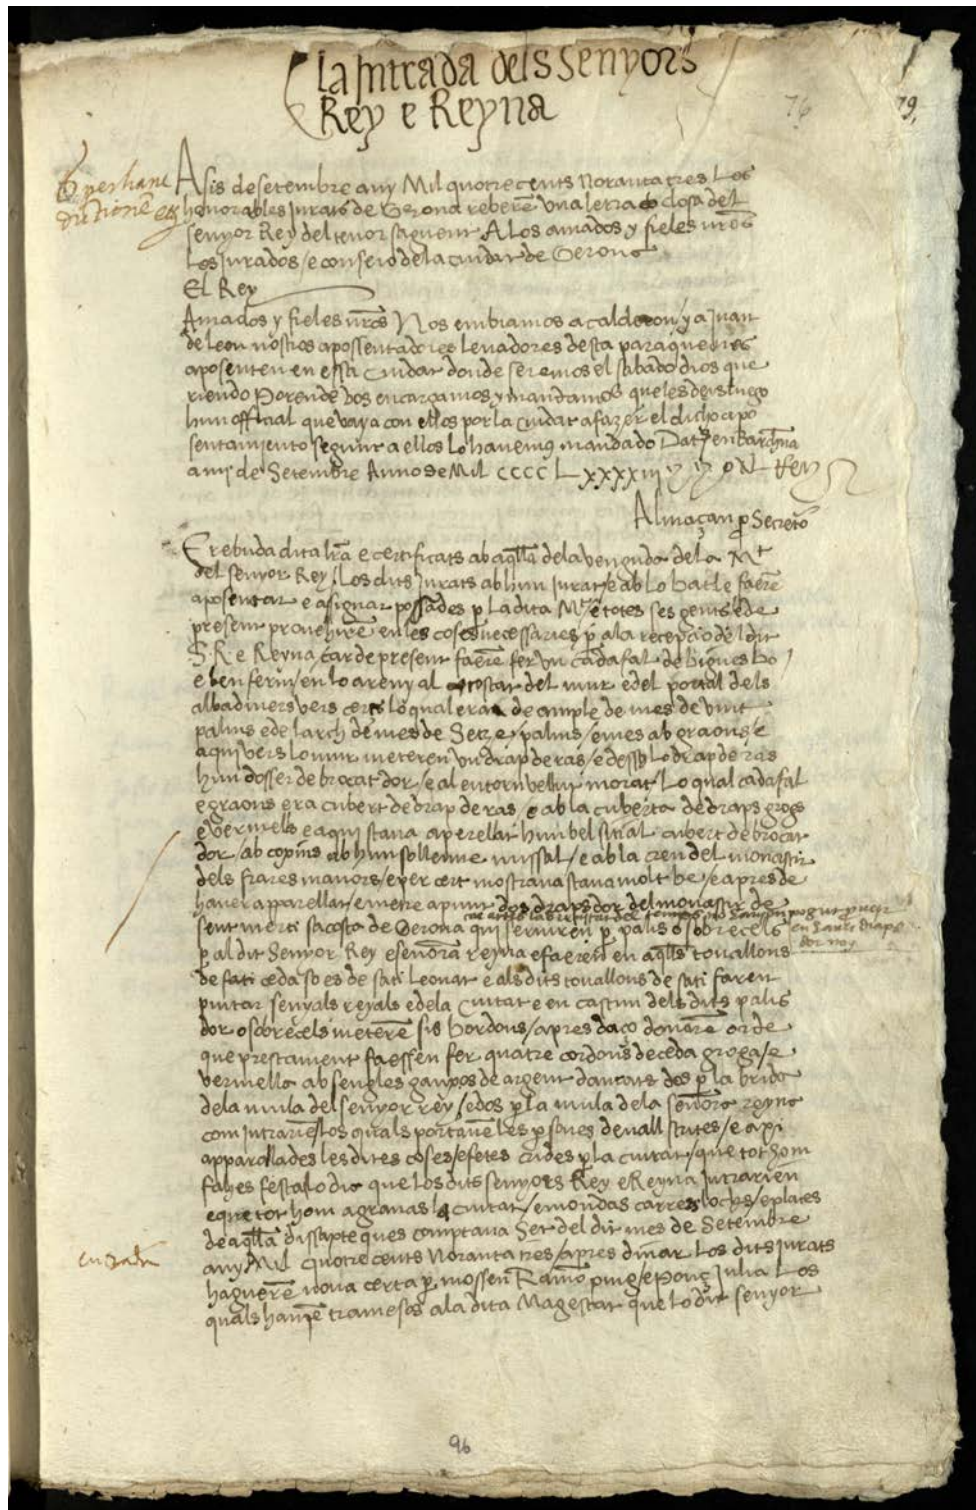 La Intrada dels Senyors
Rey e Reyna
76
79
A sis de setembre any Mil quotrecents Norantatres Los
honorables Jurats de Gerona reberen una letra closa del
senyor Rey del tenor saguent A Los amados y fieles nros
Los Jurados e conseio de la ciudat de Gerona
El Rey
Amados y fieles nros Nos embiamos a calderon y a Juan
de leon nuestros apossentadores levadores desta para que nos
aposenten en essa ciudat donde seremos el sabado dios que
riendo Porende vos encargamos y mandamos que les deis luego
hun official que vaya con ellos por la ciudat a fazer el dicho apo
sentamiento segunt a ellos lo havemos mandado Dat en Barchna
a iiij de Setembre Anno de Mil CCCC LXXXXiii Yo el Rey
Almaçan p Secreto
E rebuda dita lra e certificats ab aqlla dela venguda dela Mt
del senyor Rey / Los dits Jurats ab hun Jurat e ab lo batle faere
aposentar e asignar possades p la dita Mt e totes ses gents e de
present provehire en les coses necessaries p a la recepcio del dit
S. R. e Reyna / car de present faere fer un cadafal de bigues bo
e ben ferm / en lo areny al costat del mur e del portal dels
albadiners vers lo qual era de ample de mes de vint
palms e de larch de mes de Setze palms / e mes ab graons / e
aqui vers lo mur meteren un drap de ras / e dessus lo drap de ras
hun dosser de brocat dor / e al entorn vellut morat Lo qual cadafal
e graons era cubert de drap de ras e ab la cuberta de draps grogs
e vermells e aqui stava aperellat hun bel sitial cubert de brocat
dor / ab coxins ab hun sollemne missal / e ab la creu del monestir
dels frares manors / e per cert mostrava stava molt be / e apres de
haver apparellat e metre a punt dos draps dor del monestir de
sent marti sacosta de Gerona qui serviren p palis o sobrecels
en draps
dor nou
p al dit Senyor Rey e senora reyna e faeren en aqlls tovallons
de sati ceda so es de sati leonat e als dits tovallons de sati faren
pintar senyals reyals e dela Ciutat e en cascun dels dits palis
dor o sobrecels metere sis bordons / apres daço donare orde
que prestament faessen fer quatre cordons de ceda groga / e
vermella ab sengles ganxos de argent daurats dos p la brida
dela mula del senyor rey / e dos p la mula dela senora reyna
com intrarie / Los quals portave les psones devall scrites / e axi
apparallades les dites coses / e fetes crides p la ciutat / que tot hom
fahes festa lo dia que los dits senyors Rey e Reyna Intrarien
e que tot hom agranas la ciutat / e mondas carrers lochs / e places
de aqlla dissapte ques comptava Set del dit mes de Setembre
entrada
any Mil quotrecents Noranta tres / apres dinar Los dits Jurats
haguere nova certa p mossen Ramo puig / e Ponç Julia Los
quals havie tramesos ala dita Magestat que lo dit senyor
96